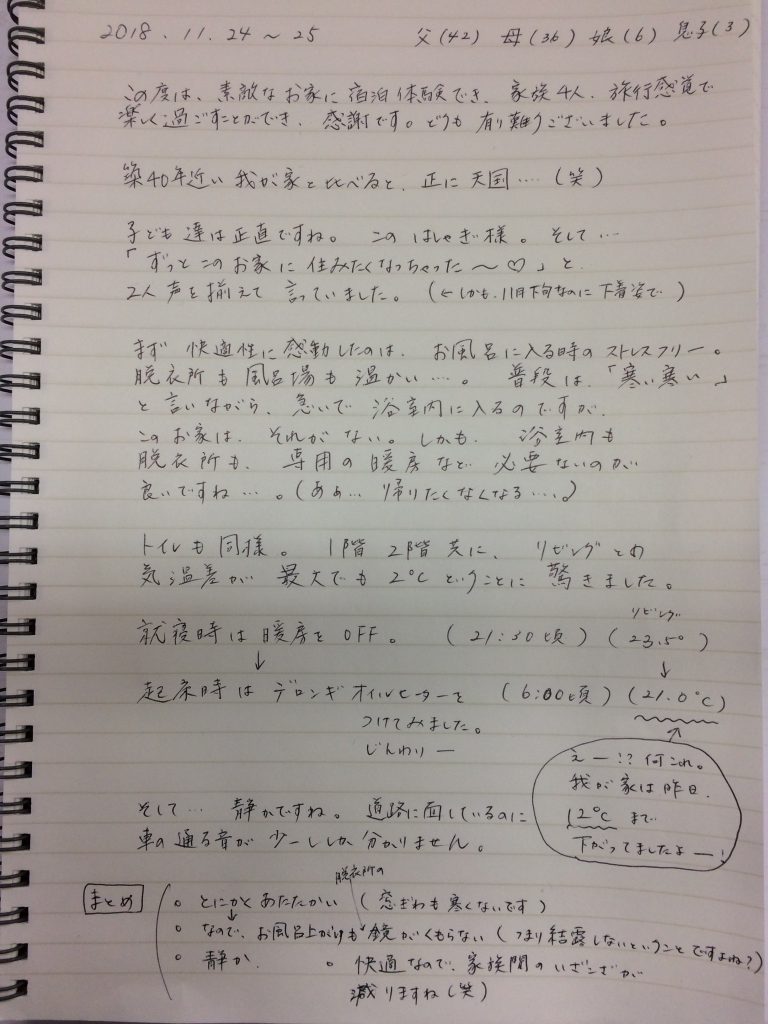 2018.11.24～25 父(42) 母(36) 娘(6) 息子(3)
この度は、素敵なお家に宿泊体験でき、家族4人、旅行感覚で
楽しく過ごすことができ、感謝です。どうも有り難うございました。
築40年近い我が家と比べると、正に天国‥‥(笑)
子ども達は正直ですね。このはしゃぎ様。そして…
「ずっとこのお家に住みたくなっちゃった～♡」と
2人声を揃えて言っていました。(←しかも、11月下旬なのに下着姿で)
まず快適性に感動したのは、お風呂に入る時のストレスフリー。
脱衣所も風呂場も温かい…。普段は、「寒い寒い」
と言いながら、急いで浴室内に入るのですが、
このお家は、それがない。しかも、浴室内も
脱衣所も、専用の暖房など必要ないのが
良いですね…。(あぁ…帰りたくなくなる…。)
トイレも同様。1階2階共に、リビングとの
気温差が最大でも2℃ということに驚きました。
リビング
就寝時は暖房をOFF。(21:30頃) (23.5°)
↓ ↓
起床時はデロンギオイルヒーターを (6:00頃) (21.0℃)
つけてみました。
じんわりー
えー!?何これ。
我が家は昨日、
12℃まで
下がってましたよー!
そして…静かですね。道路に面しているのに
車の通る音が少ーししか分かりません。
まとめ
。とにかくあたたかい(窓ぎわも寒くないです)
↓ 脱衣所の
。なので、お風呂上がりも鏡がくもらない(つまり結露しないということですよね?)
。静か、 。快適なので、家族間のいざこざが
減りますね(笑)